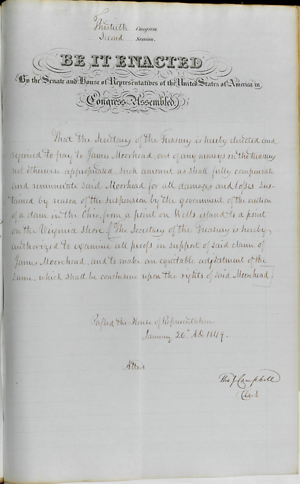 Thirtieth Congress
Second Session.
BE IT ENACTED
By the Senate and House of Representatives of the United States of America in
Congress Assembled
That the Secretary of the Treasury is hereby directed and
required to pay to James Moorhead, out of any moneys in the treasury
not otherwise appropriated, such amount as shall fully compensate
and remunerate said Moorhead for all damages and losses sus-
tained by reason of the suspension by the government of the
of a dam in the Ohio, from a point on Wells island to a point
on the Virginia Shore. The Secretary of the Treasury is hereby
authorized to examine all proofs in support of said claim of
James Moorhead, and to make an equitable adjustment of the
same, which shall be conclusive upon the rights of said Moorhead.
Passed the House of Representatives
January 26th AD. 1849.
Attest
Tho. J. Campbell
Clerk